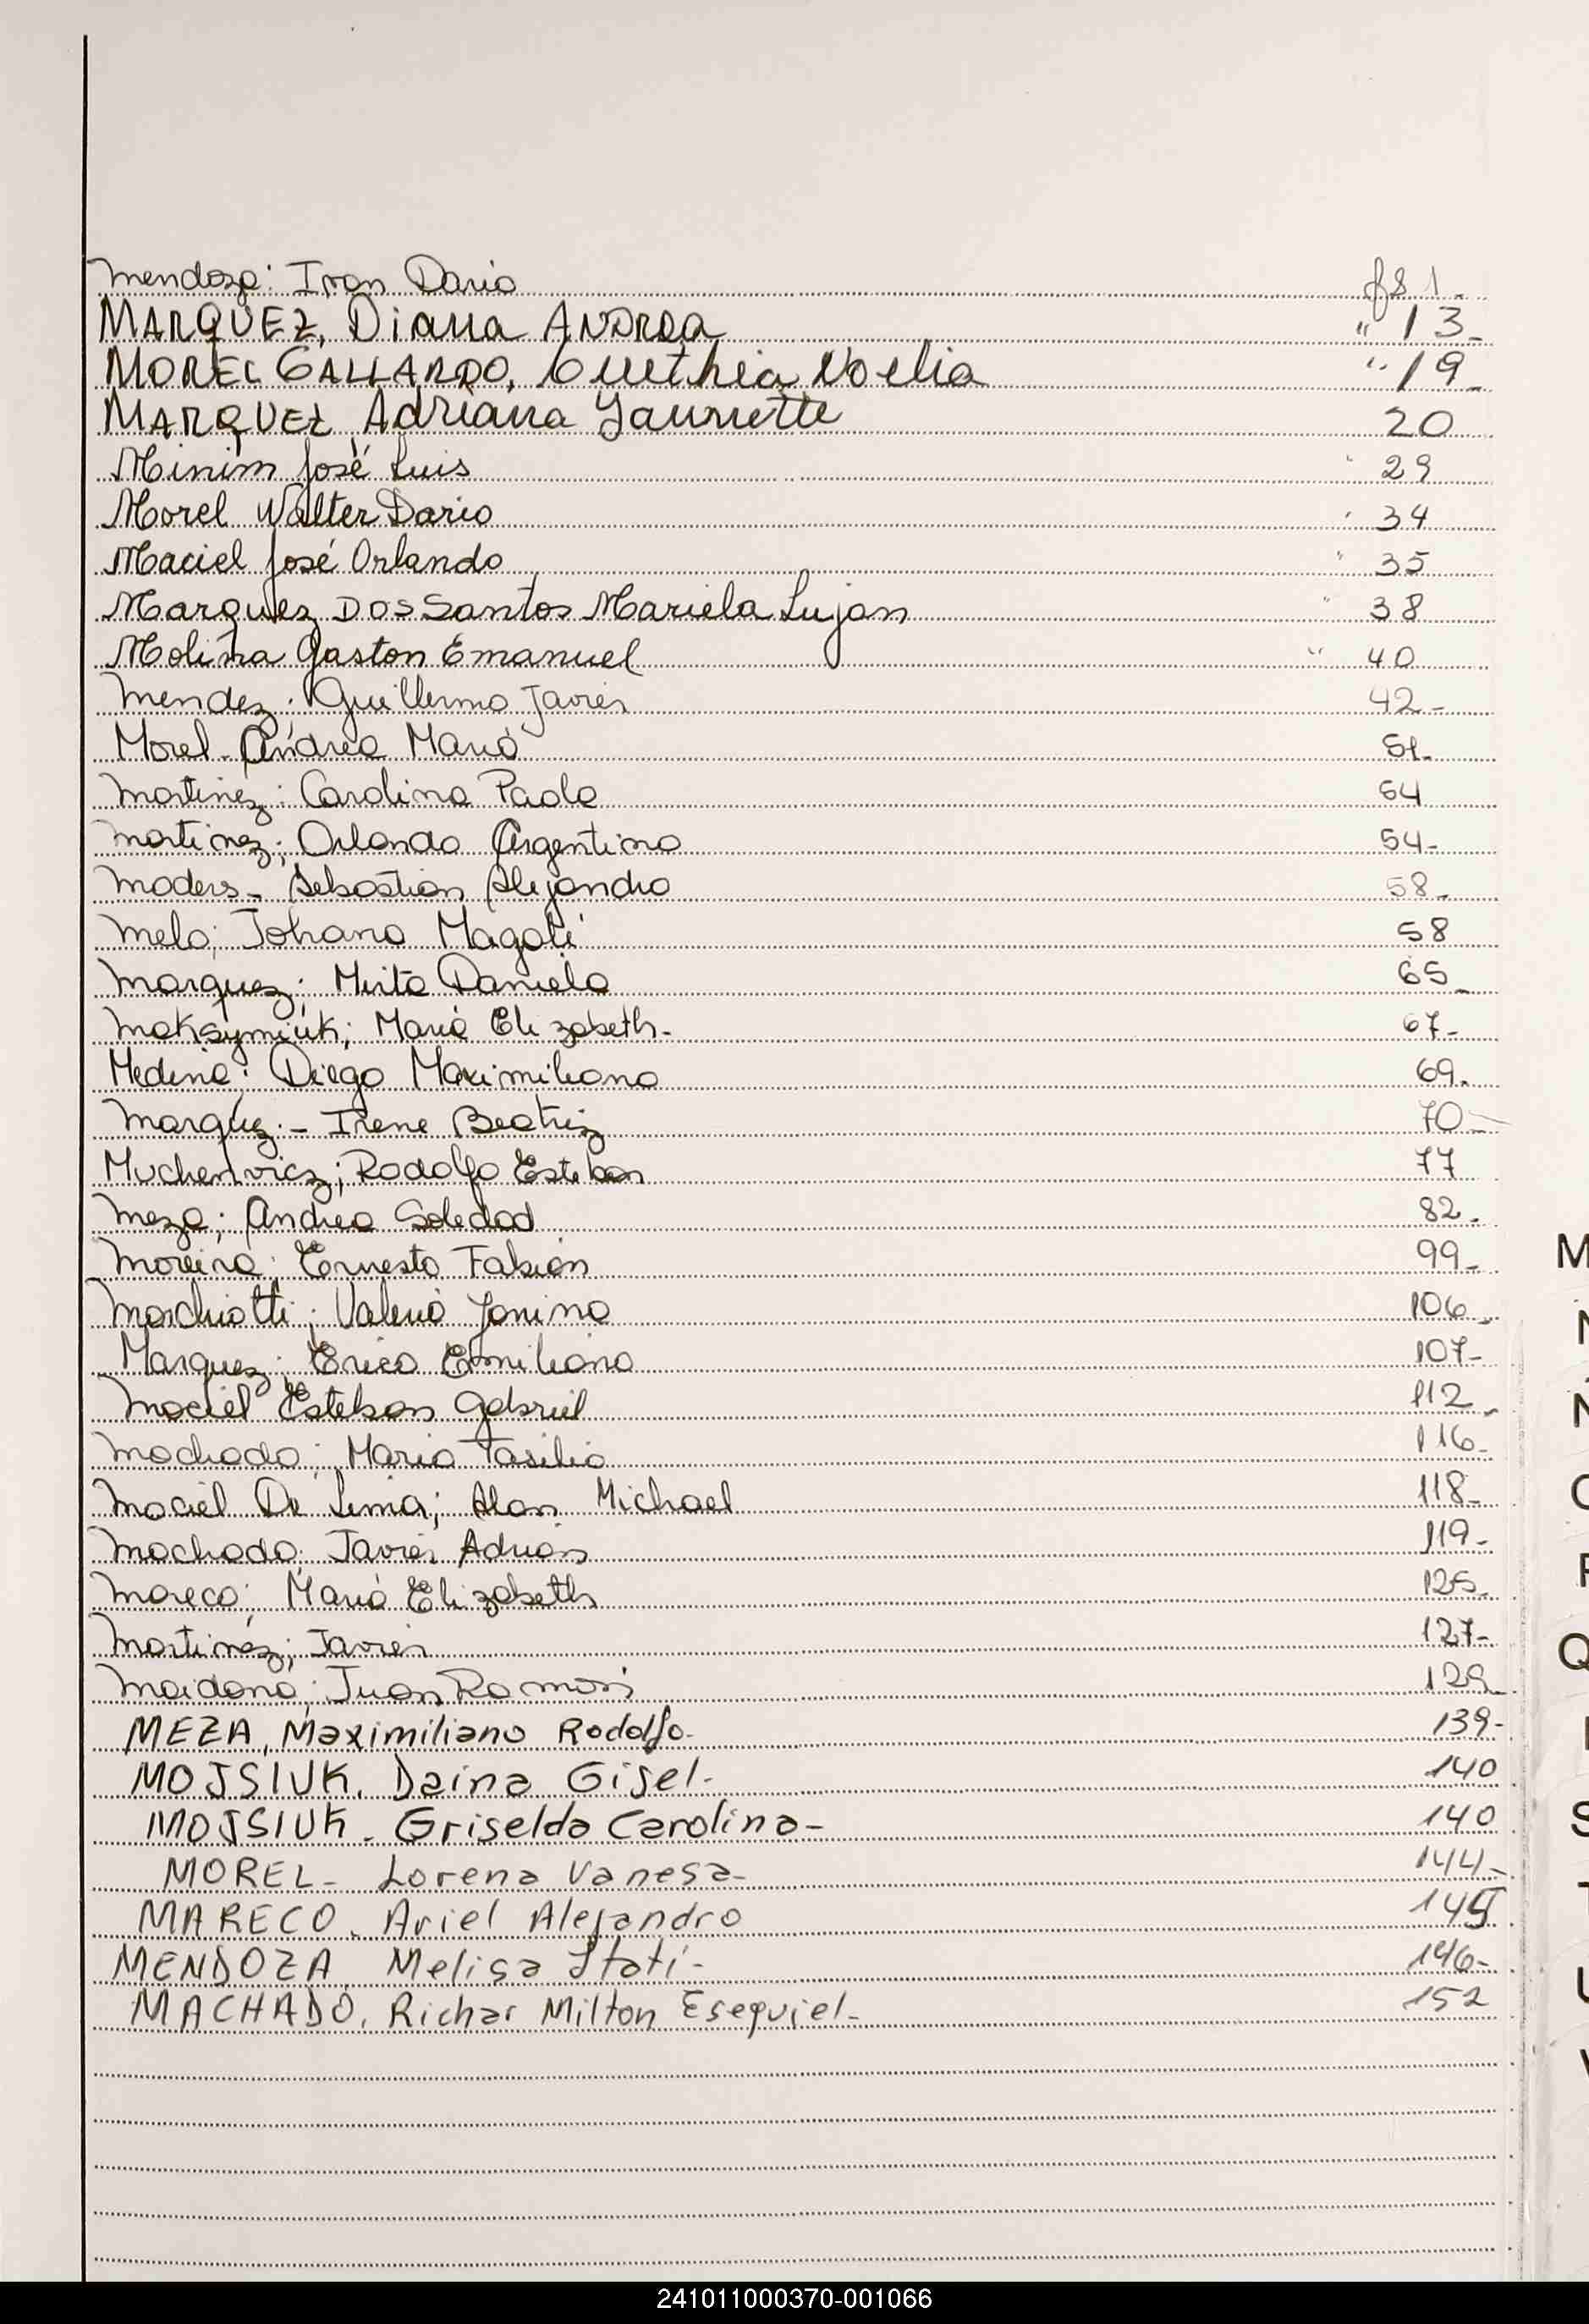 Mendoza: Ivan Dario fs 1.
MARQUEZ, Diana ANDREA " 13_
MOREL GALLARDO, Cinthia Noelia " 19_
MARQUEZ Adriana 20
Minim José Luis " 29
Morel Walter Dario " 34
Maciel José Orlando " 35
Marquez Dos Santos Mariela Lujan " 38
Molina Gaston Emanuel " 40
Mendez; Guillermo Javier 42-
Morel - Andrea María 51-
Martinez: Carolina Paola 54
Martinez; Orlando Argentino 54-
Sebastian Alejandro 58-
Melo; Johana Magalí 58
Marquez; Mirta Daniela 65_
Maksymiuk; María Elizabeth- 67-
Medina: Diego Maximiliano 69.
Marquez.- Irene Beatriz 70-
Rodolfo Esteban 77
Meza; Andrea Soledad 82.
Moreira; Ernesto Fabián 99-
Marchiotti; Valeria Janina 106_
Marquez; Erico Emiliano 107-
Maciel Esteban Gabriel 112_
Machado; Mario 116-
Maciel De Lima; Alan Michael 118-
Machado; Javier Adrián 119-
Mareco; María Elizabeth 125.
Martinez; Javier 127-
Maidana; Juan Ramón 129_
MEZA, Maximiliano Rodolfo- 139-
MOJSIUK. Daina Gisel- 140
MOJSIUK. Griselda Carolina- 140
MOREL- Lorena Vanesa- 144-
MARECO. Ariel Alejandro 145
MENDOZA. Melisa Itatí- 146-
MACHADO. Richar Milton Esequiel- 152
M
N
Q
S
241011000370-001066